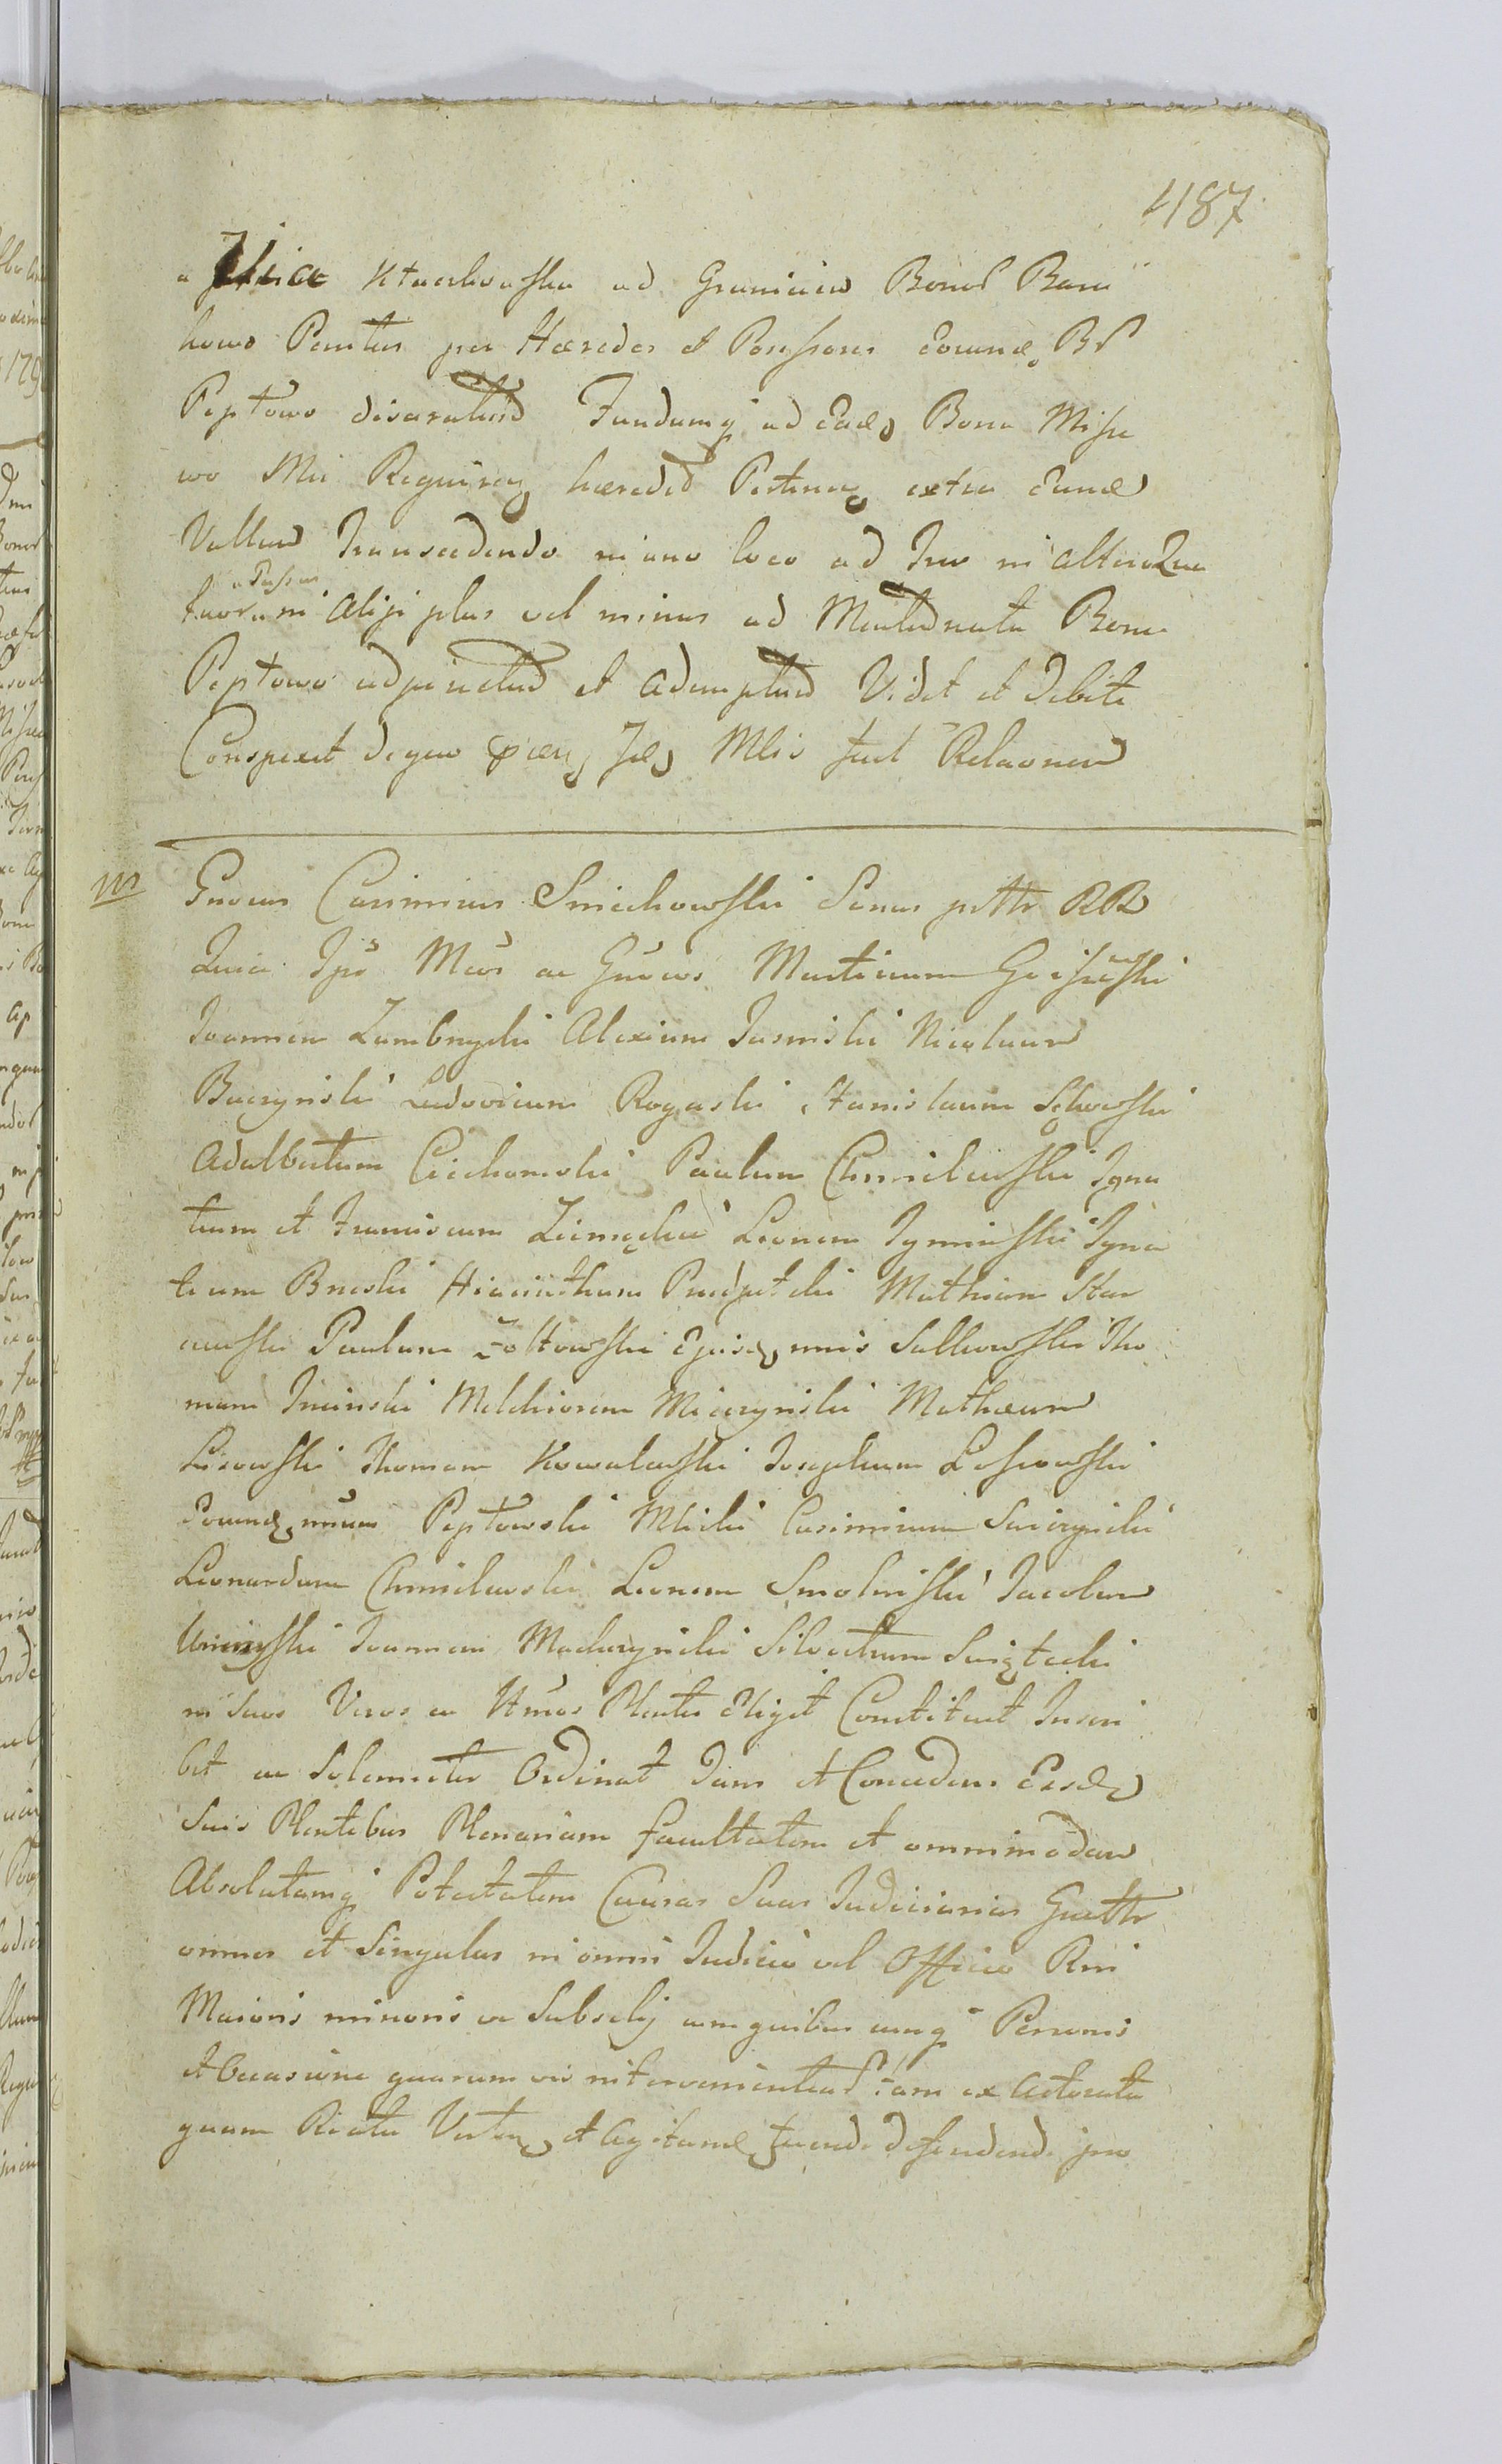 487
a Ktaerkowska ad Graniciem Bonor Barci
kowo Penitus per Hæredes et Possessores eorund BP
Peptowo disaratum Fundumq ad Ead Bona Misie
wo Mri Requiren hæredit Pertinen extra eund
Vallum Transcedendo in uno loco ad Tres in altero Qua
tuor a Passus in alijs plus vel minus ad Bona
Peptowo adjunctum et ademptum Videt et Debite
Conspexit deqvo Mlis fecit Relaonem
m Gnosus Casimirus Smiechowski Sanus pttr RR
Quia Ipse Mcos ac Gnosos Martinum
Joannem Zambrzycki Alexium Jasinski Nicolaum
Buczynski Ludovicum Rogaski Stanislaum
Adalbertum Cichomski Paulum Chmielewski Igna
tium et Franciscum Ziemęcki Leonem Tyminski Igna
tium Brzeski Hiacinthum Przedpełski Mathiam Star
zewski Paulum Żołtowski Ejusd nunis Sulkowski Tho
mam Jrzinski Melchiorem Miczynski Matheum
Lisowski Thomam Kowalewski Josephum Lossowski
Eorund nrum Peptowski Mlicki Casimirum Swiczynski
Leonardum Chmielewski Leonem Smolinski Jacobum
Uminski Joannem Maduzynski Silvestrum Swiątecki
in Suos Veros ac Ltmos Plentes Eligit Constituit Inscri
bit ac Solemniter Ordinat Dans et Concedens Eisd
Suis Plentibus Plenariam facultatem et omnimodam
Absolutamq Potestatem Causas Suas Judiciarias Gnttr
omnes et Singulas in omni Judicio vel Officio Rni
Maioris minoris ve Subselij cum quibus cunq Personis
et Occasione quarum vis intervenientium tam ex Actoratu
quam Reatu Verten et Agitand tuendi defendendi pro